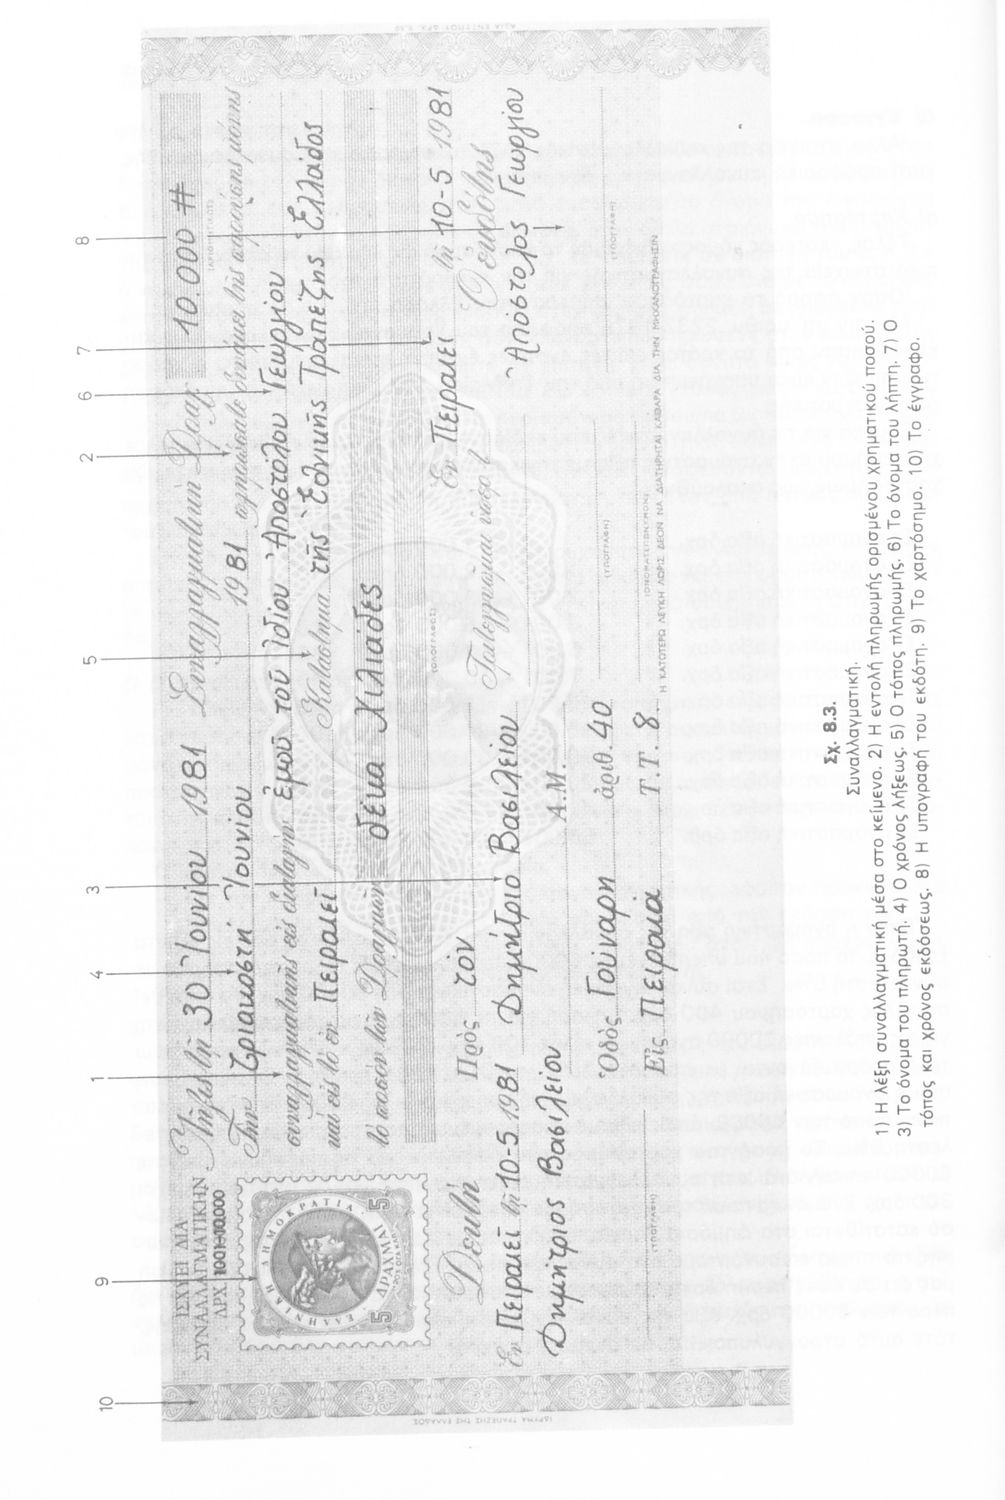 ΙΣΧΥΕΙ ΔΙΑ
ΣΥΝΑΛΛΑΓΜΑΤΙΚΗΝ
ΔΡΧ 1001-10.000
Λήξις τῇ 30 Ἰουνίου 1981 Συναλλαγματική Δραχ 10.000 #
(ΑΡΙΘΜΗΤΙΚΩΣ)
Τὴν τριακοστή Ἰουνίου 1981 πληρώσατε δυνάμει τῆς παρούσης μόνης
συναλλαγματικῆς εἰς διαταγήν Ἐμού του Ἰδίου Ἀποστόλου Γεωργίου
καὶ εἰς τὸ ἐν Πειραιεί Κατάστημα της Ἐθνικης Τραπεζης Ἑλλάδος
τὸ ποσὸν τῶν Δραχμῶν δέκα Χιλιάδες
(ΟΛΟΓΡΑΦΩΣ)
ΕΛΛΗΝΙΚΗ ΔΗΜΟΚΡΑΤΙΑ
5 ΔΡΑΧΜΑΙ 5
Δεκτή
Ἐν Πειραιεί τῇ 10-5 1981
Δημήτριος Βασιλείου
(ΥΠΟΓΡΑΦΗ)
Πρὸς τον
Δημήτριο Βασιλείου
Α.Μ
Ὁδὸς Γούναρη ἀριθ. 40
Εἰς Πειραιά Τ.Τ. 8
(ΥΠΟΓΡΑΦΗ)
Ἐν Πειραιεί τῇ 10-5 1981
Ὁ Ἐκδότης
Ἀπόστολος Γεωργίου
(ΥΠΟΓΡΑΦΗ)
Η ΚΑΤΩΤΕΡΩ ΛΕΥΚΗ ΛΩΡΙΣ ΔΕΟΝ ΝΑ ΔΙΑΤΗΡΗΤΑΙ ΚΑΘΑΡΑ ΔΙΑ ΤΗΝ ΜΗΧΑΝΟΓΡΑΦΗΣΙΝ
ΙΔΡΥΜΑ ΤΡΑΠΕΖΗΣ ΤΗΣ ΕΛΛΑΔΟΣ
10
9
1
4
3
5
2
6
7
8
Σχ. 8.3.
Συναλλαγματική.
1) Η λέξη συναλλαγματική μέσα στο κείμενο. 2) Η εντολή πληρωμής ορισμένου χρηματικού ποσού.
3) Το όνομα του πληρωτή. 4) Ο χρόνος λήξεως. 5) Ο τόπος πληρωμής. 6) Το όνομα του λήπτη. 7) Ο
τόπος και χρόνος εκδόσεως. 8) Η υπογραφή του εκδότη. 9) Το χαρτόσημο. 10) Το έγγραφο.